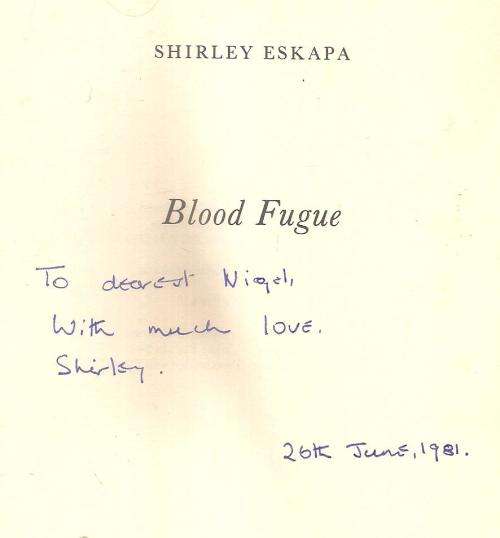 SHIRLEY ESKAPA
Blood Fugue
To dearest Nigel,
With much love.
Shirley.
26th June, 1981.